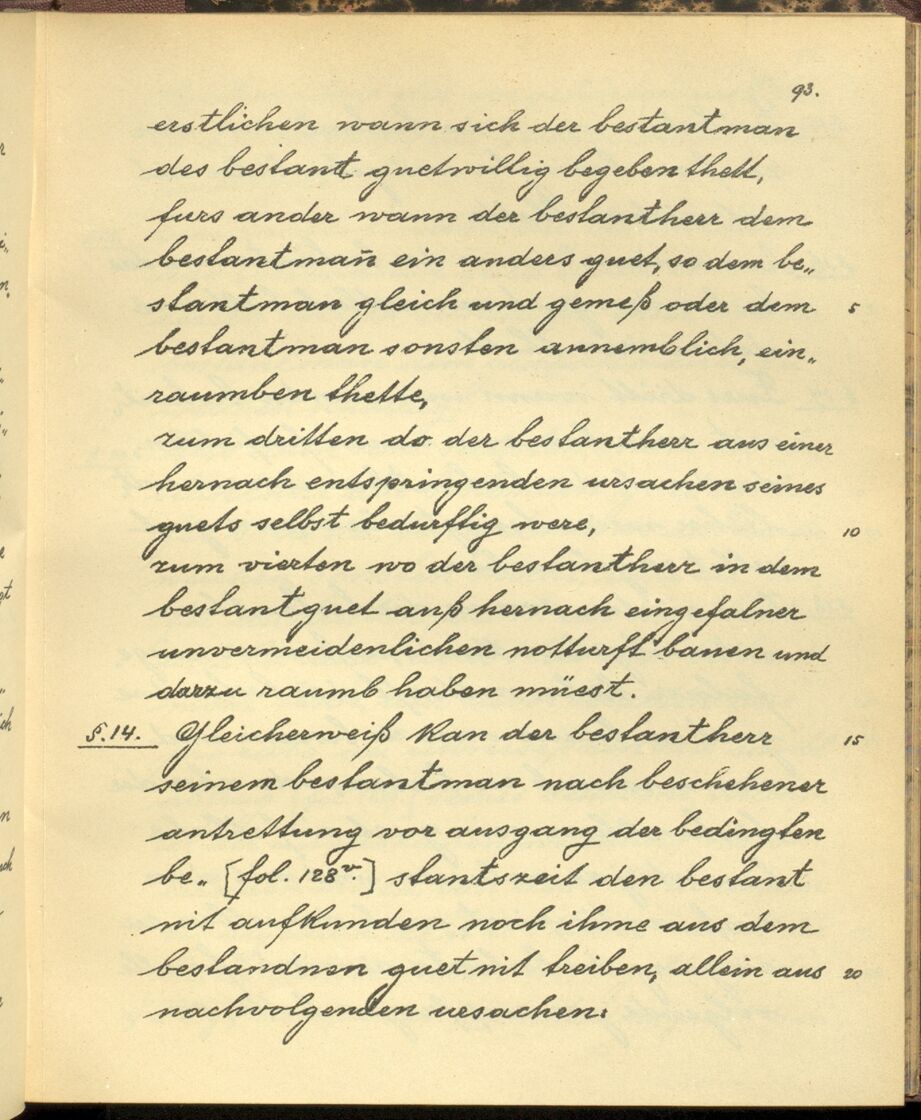 93.
erstlichen wann sich der bestantman
des bestant guetwillig begeben thett,
furs ander wann der bestantherr dem
bestantman̄ ein anders guet, so dem be„
stantman gleich und gemeß oder dem 5
bestantman sonsten annemblich, ein„
raumben thette,
zum dritten do der bestantherr aus einer
hernach entspringenden ursachen seines
guets selbst bedurftig were, 10
zum vierten wo der bestantherr in dem
bestantguet auß hernach eingefalner
unvermeidenlichen notturft bauen und
darzu raumb haben müest.
§.14. Gleicherweiß kan der bestantherr 15
seinem bestantman nach beschehener
antrettung vor ausgang der bedingten
be„ [fol. 128v.] stantszeit den bestant
nit aufkunden noch ihme aus dem
bestandnen guet nit treiben, allein aus 20
nachvolgenden ursachen: